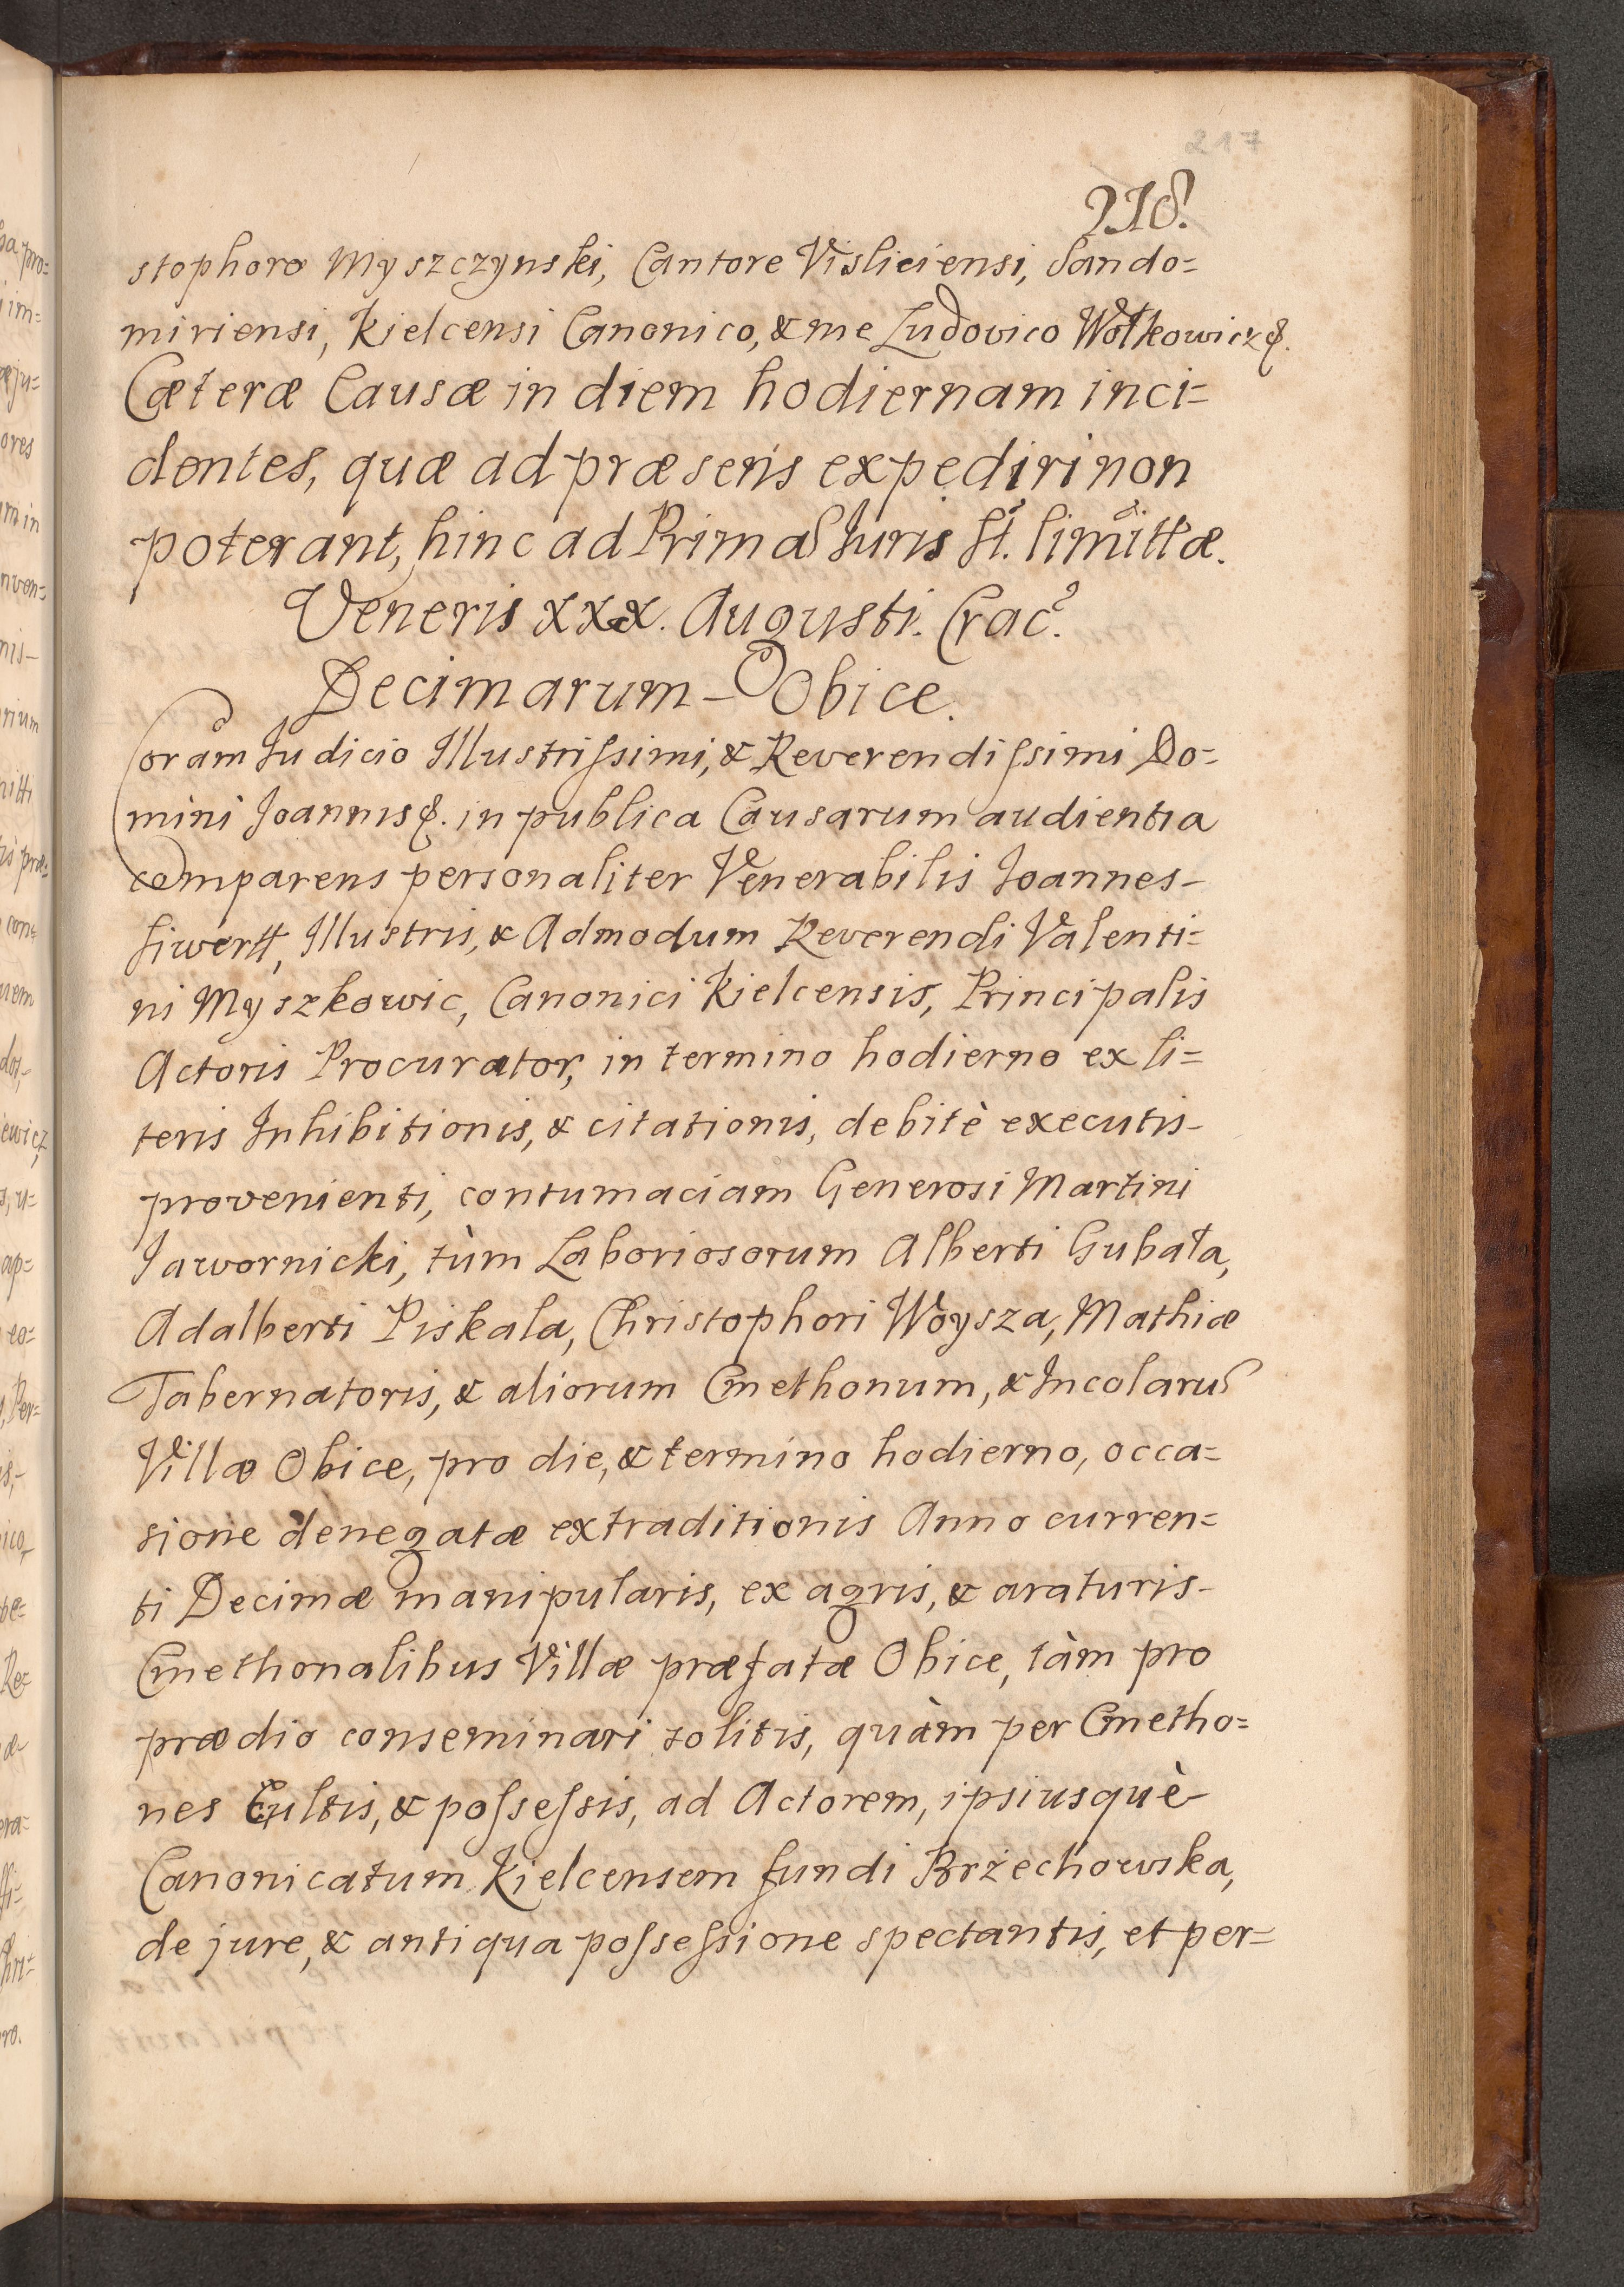 217
218.
stophoro Myszczynski, Cantore Visliciensi, Sando=
miriensi, Kielcensi Canonico, & me Ludovico Wołkowicz &.
Cæteræ Causæ in diem hodiernam inci=
dentes, quæ ad præsens expediri non
poterant, hinc ad Primas Juris St. limittæ.
Veneris xxx. Augusti. Crac.
Decimarum - Obice.
Coram Judicio Illustrissimi, & Reverendissimi Do=
mini Joannis &. in publica Causarum audientia
comparens personaliter Venerabilis Joannes-
Siwertt, Illustris, & Admodum Reverendi Valenti=
ni Myszkowic, Canonici Kielcensis, Principalis
Actoris Procurator, in termino hodierno ex li=
teris Inhibitionis, & citationis, debitè executis-
provenienti, contumaciam Generosi Martini
Jawornicki, tùm Laboriosorum Alberti Gubała,
Adalberti Piskala, Christophori Woysza, Mathiæ
Tabernatoris, & aliorum Cmethonum, & Incolaru
Villæ Obice, pro die, & termino hodierno, occa=
sione denegatæ extraditionis Anno curren=
ti Decimæ manipularis, ex agris, & araturis-
Cmethonalibus Villæ præfatæ Obice, tàm pro
prædio conseminari solitis, quàm per Cmetho=
nes Cultis, & possessis, ad Actorem, ipsiusquè-
Canonicatum Kielcensem fundi Brzechowska,
de jure, & antiqua possessione spectantis, et per=